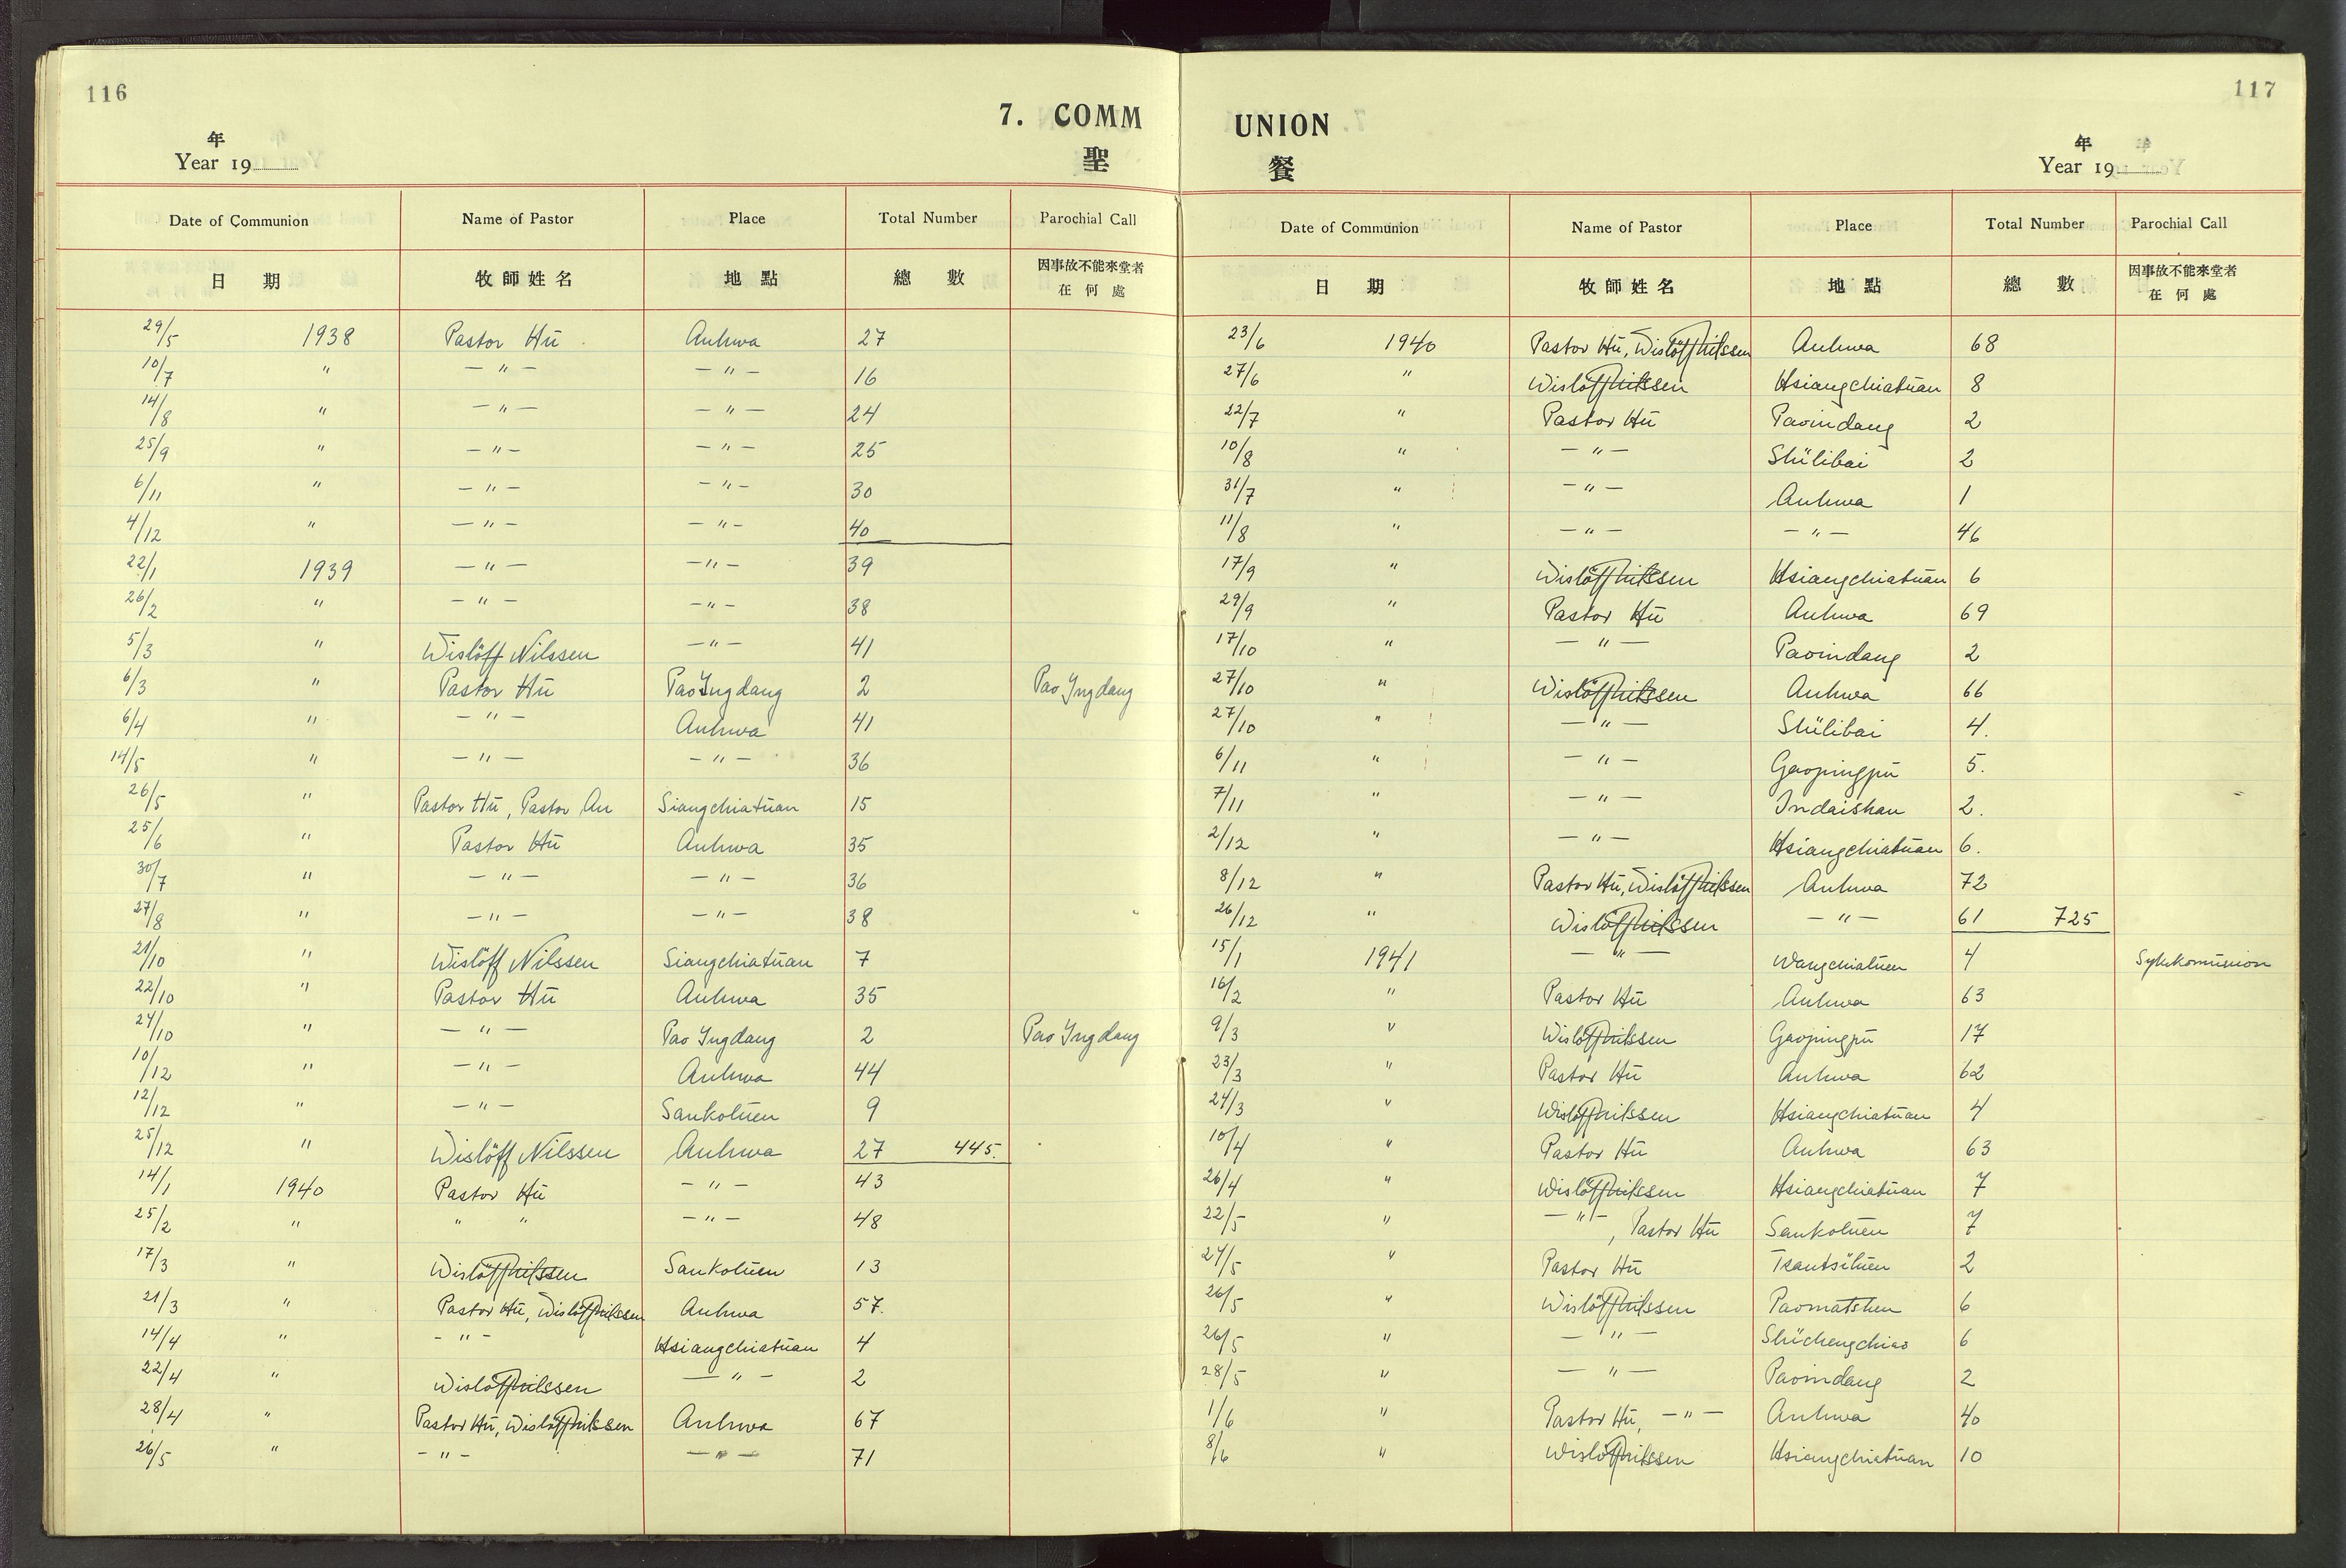 116
7. COMM
年
Year 19
聖
Date of Communion Name of Pastor Place Total Number Parochial Call
日 期 牧師姓名 地點 總 數 因事故不能來堂者 在何處
29/5 1938 Pastor Hü Anhwa 27
10/7 " — " — — " — 16
14/8 " — " — — " — 24
25/9 " — " — — " — 25
6/11 " — " — — " — 30
4/12 " — " — — " — 40
22/1 1939 — " — — " — 39
26/2 " — " — — " — 38
5/3 " Wislöff Nilssen — " — 41
6/3 " Pastor Hü Pao Yngdang 2 Pao Yngdang
6/4 " — " — Anhwa 41
14/5 " — " — — " — 36
26/5 " Pastor Hü, Pastor An Siangchiatüan 15
25/6 " Pastor Hü Anhwa 35
30/7 " — " — — " — 36
27/8 " — " — — " — 38
21/10 " Wislöff Nilssen Siangchiatüan 7
22/10 " Pastor Hü Anhwa 35
24/10 " — " — Pao Yngdang 2 Pao Yngdang
10/12 " — " — Anhwa 44
12/12 " — " — Sankotuen 9
25/12 " Wislöff Nilssen Anhwa 27 445.
14/1 1940 Pastor Hü — " — 43
25/2 " " " — " — 48
17/3 " Wislöff Nilssen Sankotuen 13
21/3 " Pastor Hü, Wislöff Nilssen Anhwa 57.
14/4 " — " — Hsiangchiatüan 4
22/4 " Wislöff Nilssen — " — 2
28/4 " Pastor Hü, Wislöff Nilssen Anhwa 67
26/5 " — " — — " — 71
117
UNION
年
Year 19
餐
Date of Communion Name of Pastor Place Total Number Parochial Call
日 期 牧師姓名 地點 總 數 因事故不能來堂者 在何處
23/6 1940 Pastor Hü, Wislöff Nilssen Anhwa 68
27/6 " Wislöff Nilssen Hsiangchiatüan 8
22/7 " Pastor Hü Paoindang 2
10/8 " — " — Shülibai 2
31/7 " — " — Anhwa 1
11/8 " — " — — " — 46
17/9 " Wislöff Nilssen Hsiangchiatüan 6
29/9 " Pastor Hü Anhwa 69
17/10 " — " — Paoindang 2
27/10 " Wislöff Nilssen Anhwa 66
27/10 " — " — Shülibai 4.
6/11 " — " — Gaopingpu 5.
7/11 " — " — Indaishan 2.
2/12 " — " — Hsiangchiatüan 6.
8/12 " Pastor Hü, Wislöff Nilssen Anhwa 72
26/12 " Wislöff Nilssen — " — 61 725
15/1 1941 — " — Wangchiatuen 4
16/2 " Pastor Hü Anhwa 63
9/3 " Wislöff Nilssen Gaopingpu 17
23/3 " Pastor Hü Anhwa 62
24/3 " Wislöff Nilssen Hsiangchiatuan 4
10/4 " Pastor Hü Anhwa 63
26/4 " Wislöff Nilssen Hsiangchiatuan 7
22/5 " — " —, Pastor Hü Sankotuen 7
24/5 " Pastor Hü Tsantsituen 2
26/5 " Wislöff Nilssen Paomatshen 6
26/5 " — " — Shüchengchiao 6
28/5 " — " — Paoindang 2
1/6 " Pastor Hü, — " — Anhwa 40
8/6 " Wislöff Nilssen Hsiangchiatuan 10